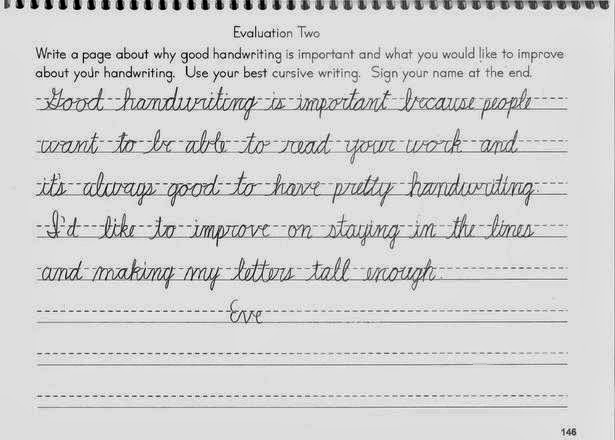 Evaluation Two
Write a page about why good handwriting is important and what you would like to improve
about your handwriting. Use your best cursive writing. Sign your name at the end.
Good handwriting is important because people
want to be able to read your work and
it's always good to have pretty handwriting.
I'd like to improve on staying in the lines
and making my letters tall enough.
Eve
146